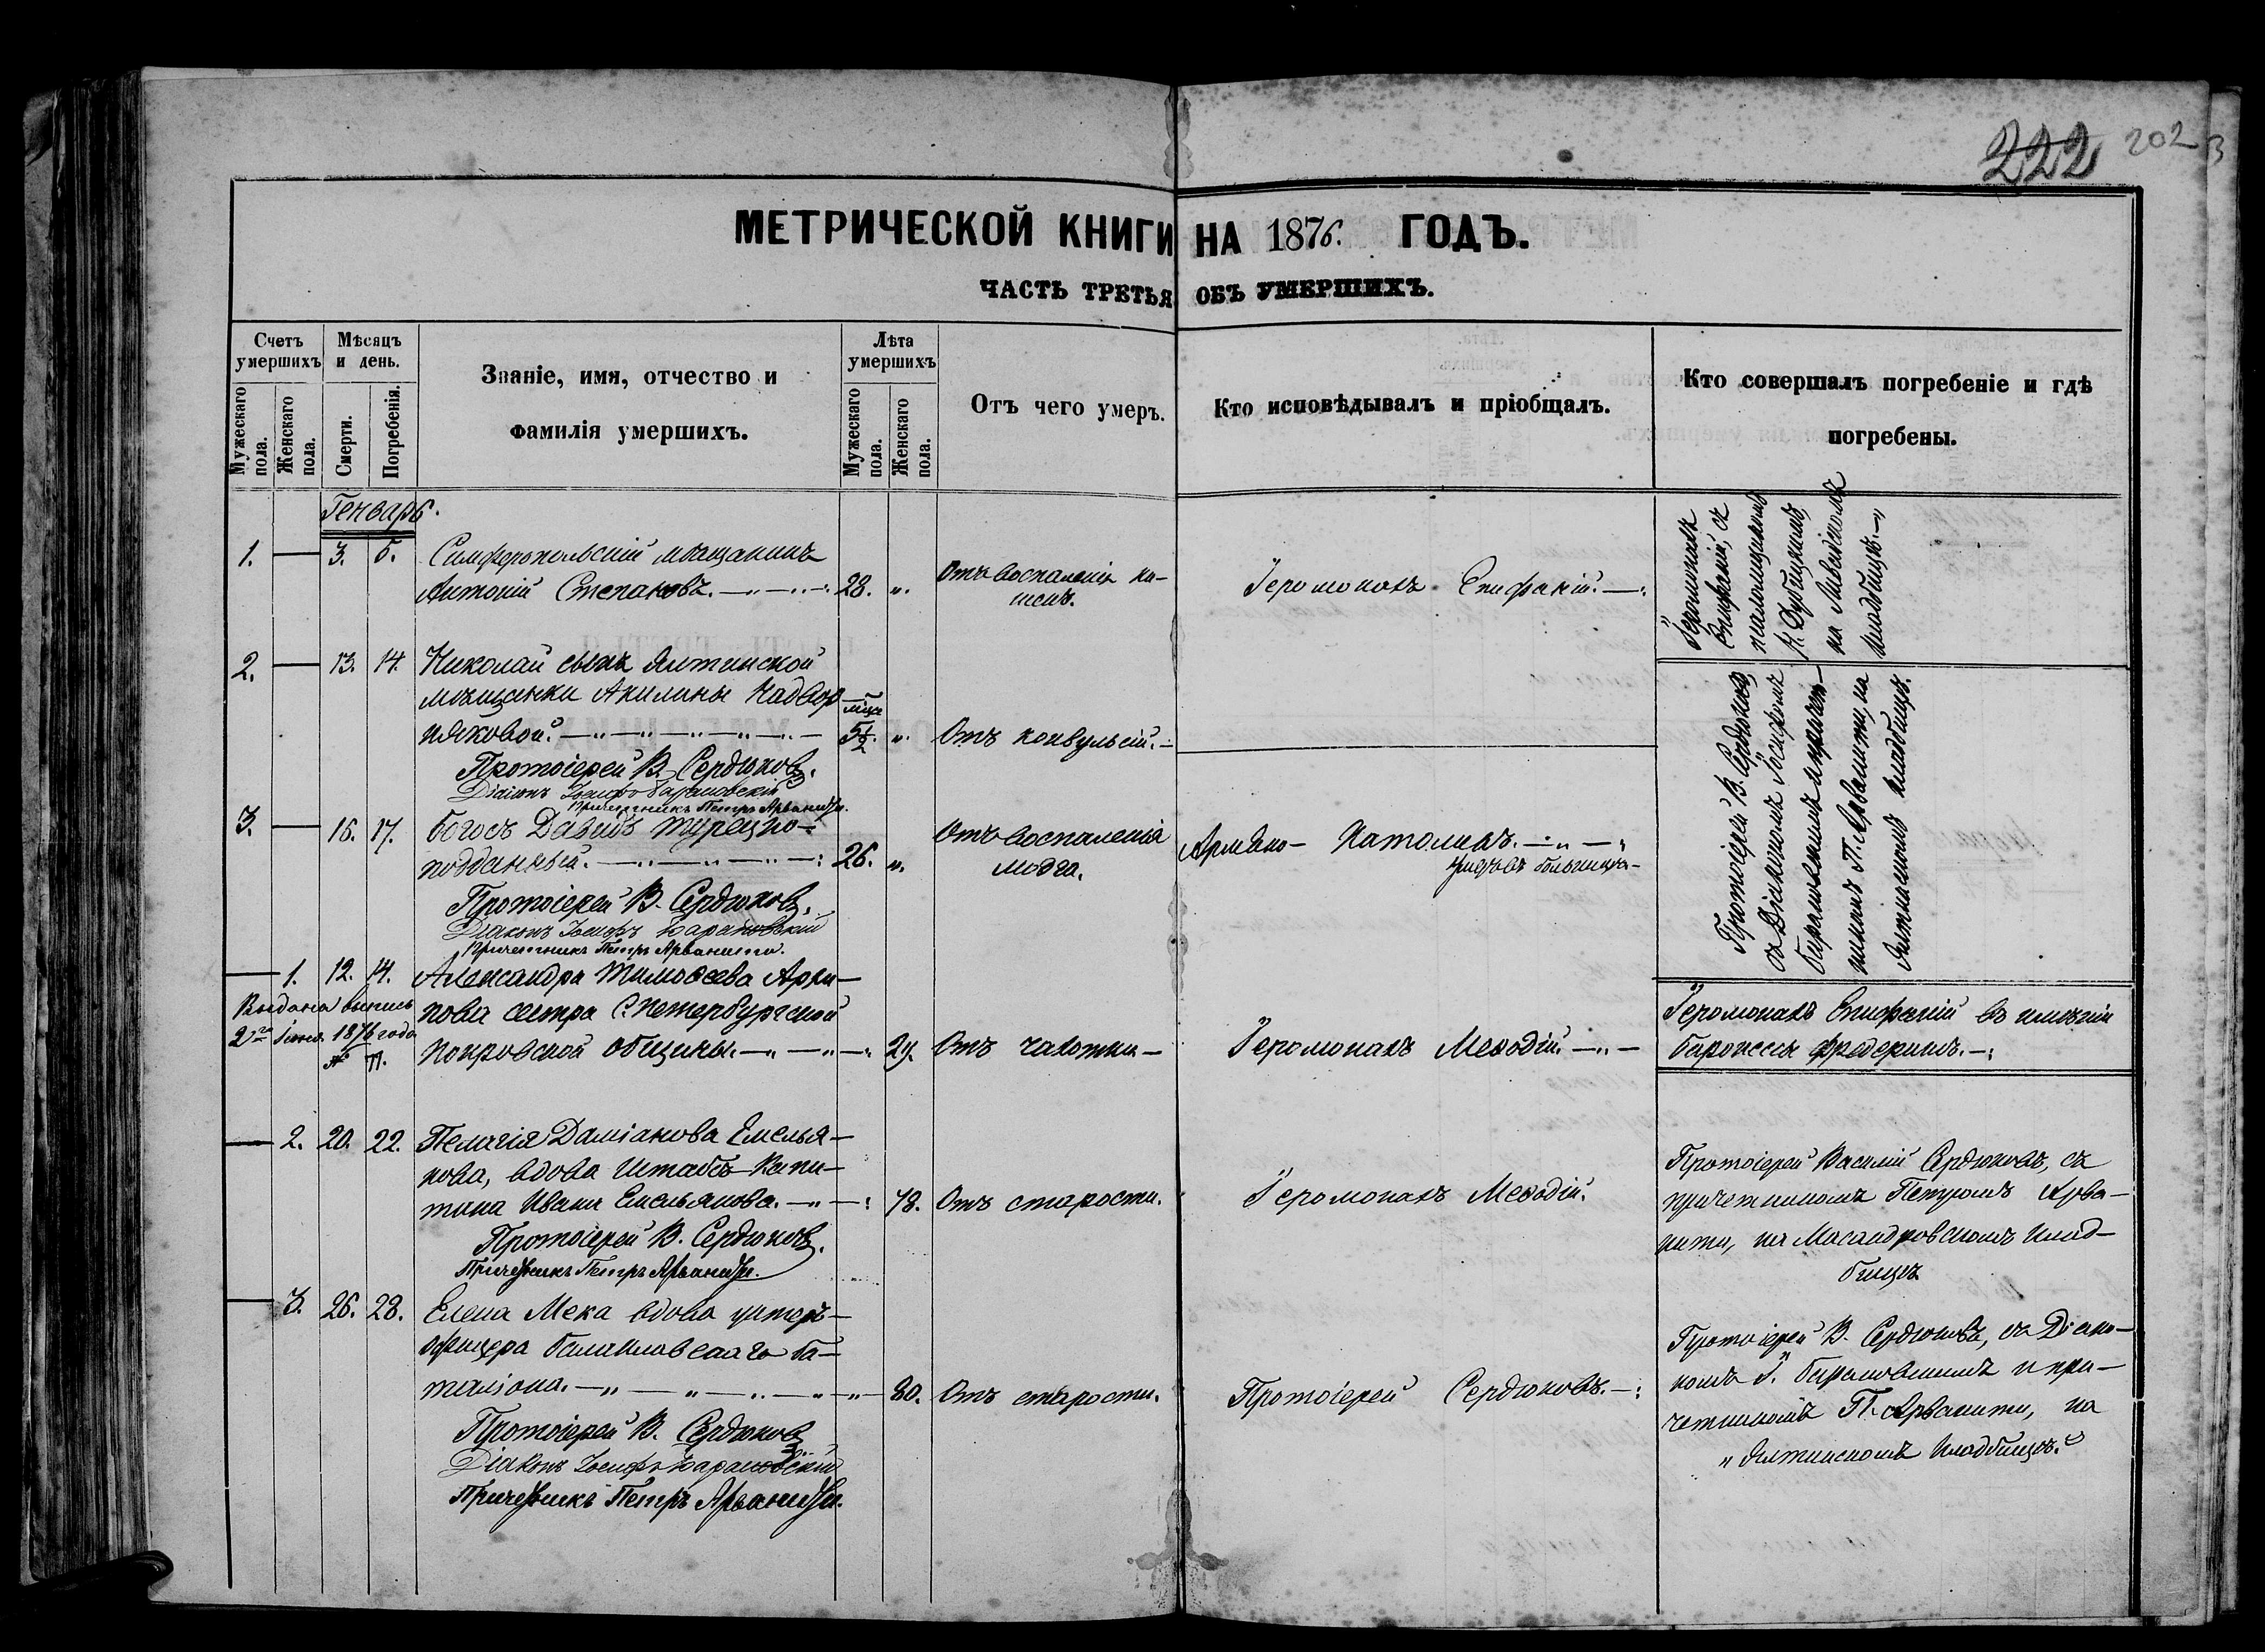 222 202
МЕТРИЧЕСКОЙ КНИГИ НА 1876. ГОДЪ.
ЧАСТЬ ТРЕТЬЯ ОБЪ УМЕРШИХЪ.
Счетъ умершихъ
Мужескаго пола.
Женскаго пола.
Мѣсяцъ и день.
Смерти.
Погребенія.
Званіе, имя, отчество и
фамилія умершихъ.
Лѣта умершихъ
Мужескаго пола.
Женскаго пола.
Отъ чего умеръ.
Кто исповѣдывалъ и пріобщалъ.
Кто совершалъ погребеніе и гдѣ
погребены.
Генварь.
1. — 3. 5. Симферопольскій мѣщанинъ
Антоній Степановъ. 28. „.
Отъ воспаленія ки-
шекъ.
Іеромонахъ Епифаній.
Іеромонахъ
Епифаній, съ
псаломщикомъ
на Ливадійскомъ
кладбищѣ.
2. — 13. 14. Николай сынъ Ялтинской
мѣщанки Акилины Надвор-
няковой. мѣся 5½. „. Отъ конвульсій.
Протоіерей В. Сердюковъ.
Діаконъ Іосифъ Барановскій
Причетникъ Петръ Арванити.
Протоіерей В. Сердюковъ,
съ Діакономъ Іосифомъ
Барановскимъ и причет-
никомъ П. Арванити, на
Ялтинскомъ кладбищѣ.
3. — 16. 17. Богосъ Давидъ турецко-
подданный. 26. „.
Отъ воспаленія
мозга.
Армяно- Католикъ.
Протоіерей В. Сердюковъ.
Діаконъ Іосифъ Барановскій
Причетникъ Петръ Арванити.
— 1. 12. 14. Александра Тимоѳеева Архи-
пова сестра С.Петербургской
Покровской общины. 29. Отъ чахотки —
Выдана выпись
2го Іюня 1876 года
№ 77.
Іеромонахъ Меѳодій.
Іеромонахъ Епифаній въ имѣніи
баронессы Фредериксъ.
— 2. 20. 22. Пелагія Даміанова Емелья-
нова, вдова Штабсъ-Капи-
тана Ивана Емельянова. 78. Отъ старости.
Протоіерей В. Сердюковъ.
Причетникъ Петръ Арванити.
Іеромонахъ Меѳодій.
Протоіерей Василій Сердюковъ, съ
причетникомъ Петромъ Арва-
нити, на Масандровскомъ клад-
бищѣ
— 3. 26. 28. Елена Мека вдова унтеръ-
офицера Балаклавскаго ба-
таліона. 80. Отъ старости.
Протоіерей В. Сердюковъ
Діаконъ Іосифъ Барановскій
Причетникъ Петръ Арванити.
Протоіерей Сердюковъ.
Протоіерей В. Сердюковъ, съ Діако-
номъ І. Барановскимъ и при-
четникомъ П. Арванити, на
„Ялтинскомъ кладбищѣ."